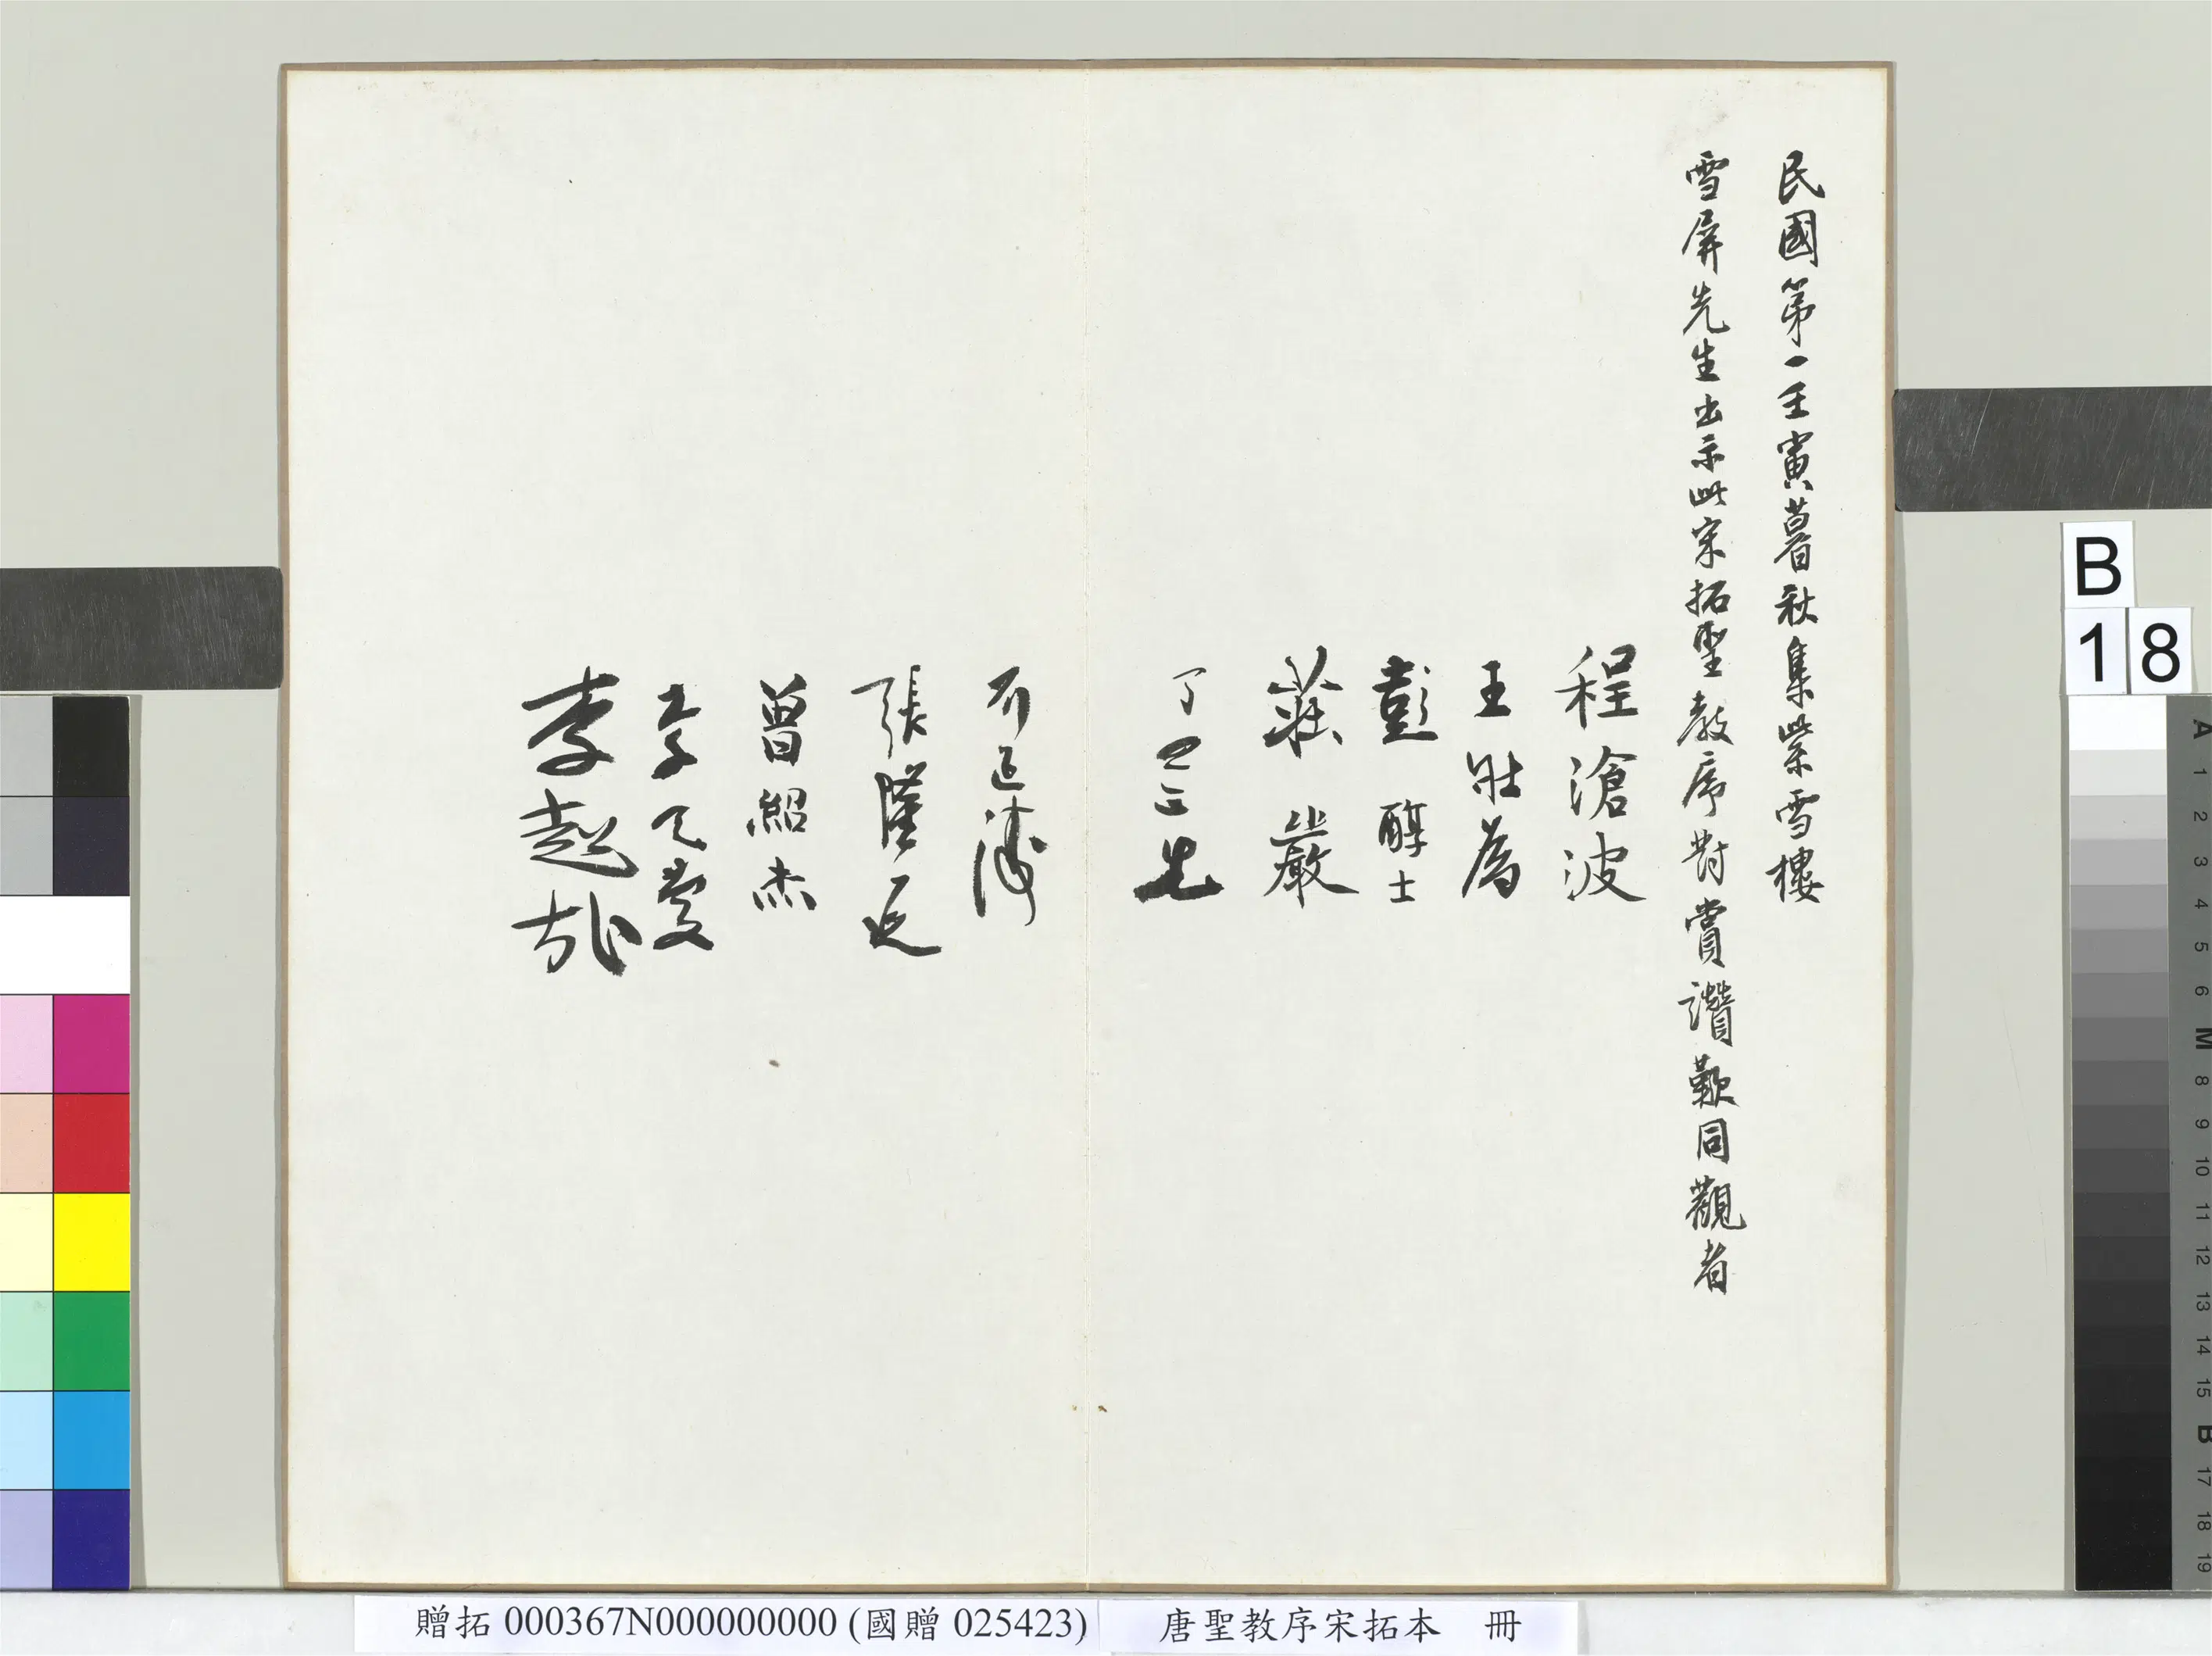 民國第一壬寅暮秋集紫雪樓
雪屏先生出示此宋拓聖教序對賞讚歎同觀者
程滄波
王壯為
彭醇士
莊嚴
丁念先
延
張隆延
曾紹杰
李
李超哉
B
18
A 1 2 3 4 5 6 M 8 9 10 11 12 13 14 15 B 17 18 19
贈拓 000367N000000000 (國贈 025423) 唐聖教序宋拓本 冊